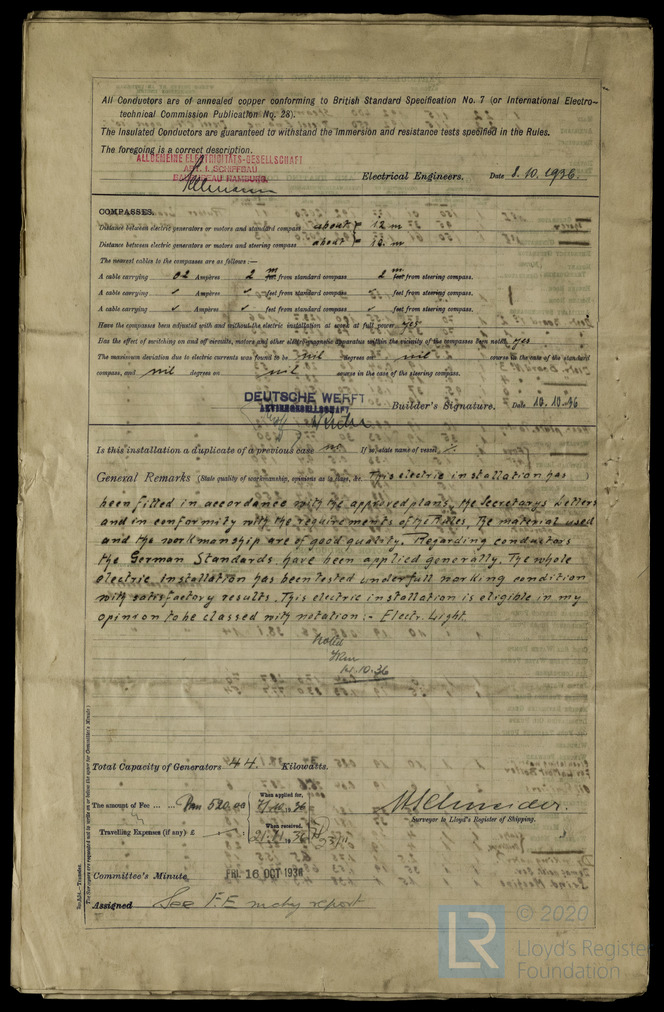 All Conductors are of annealed copper conforming to British Standard Specification No. 7 (or International Electro-
technical Commission Publication No. 28).
The Insulated Conductors are guaranteed to withstand the immersion and resistance tests specified in the Rules.
The foregoing is a correct description.
ALLGEMEINE ELECTRICITÄTS-GESELLSCHAFT
ABT. I. SCHIFFBAU
HAMBURG.
Electrical Engineers. Date 8.10.1936.
COMPASSES.
Distance between electric generators or motors and standard compass about 12 m
Distance between electric generators or motors and steering compass about 10 m
The nearest cables to the compasses are as follows:—
A cable carrying 02 Ampères 2 m feet from standard compass 2 m feet from steering compass.
A cable carrying ✓ Ampères ✓ feet from standard compass ✓ feet from steering compass.
A cable carrying ✓ Ampères ✓ feet from standard compass ✓ feet from steering compass.
Have the compasses been adjusted with and without the electric installation at work at full power yes
Has the effect of switching on and off circuits, motors and other electro-magnetic apparatus within the vicinity of the compasses been noted yes
The maximum deviation due to electric currents was found to be nil degrees on nil course in the case of the standard
compass, and nil degrees on nil course in the case of the steering compass.
DEUTSCHE WERFT
AKTIENGESELLSCHAFT
Builder's Signature. Date 10.10.36
Is this installation a duplicate of a previous case no If so, state name of vessel
General Remarks (State quality of workmanship, opinions as to class, &c. This electric installation has
been fitted in accordance with the approved plans, the Secretarys Letters
and in conformity with the requirements of the Rules, The material used
and the workmanship are of good quality. Regarding conductors
the German Standards have been applied generally. The whole
electric installation has been tested under full working condition
with satisfactory results. This electric installation is eligible in my
opinion to be classed with notation:- Electr. Light.
Noted
10.36
Total Capacity of Generators 44. Kilowatts.
The amount of Fee ... ... Rm 520.00
When applied for,
10 36
When received,
21.11 1936
23/11
Travelling Expenses (if any) £
Surveyor to Lloyd's Register of Shipping.
Committee's Minute FRI. 16 OCT 1936
Assigned See F.E. mchy report
(The Surveyors are requested not to write on or below the space for Committee's Minute.)
© 2020
LR
Lloyd's Register
Foundation